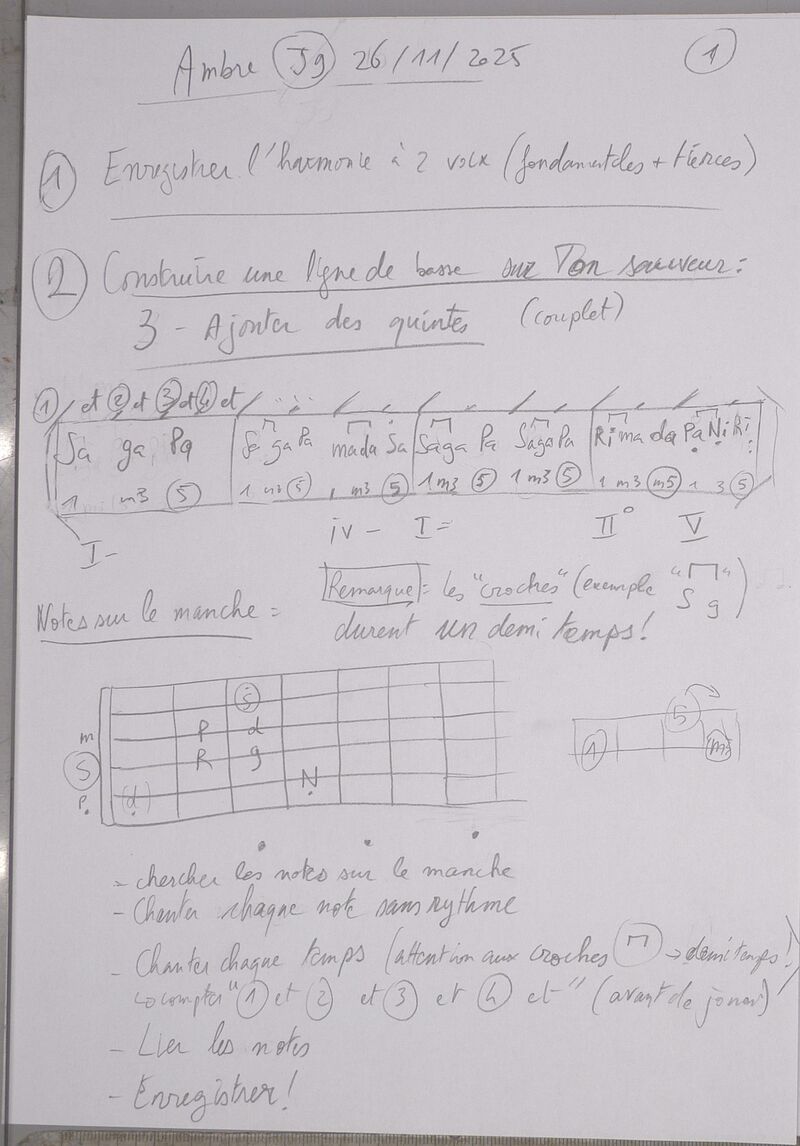 Ambre Jg 26/11/2025 1
1 Enregistrer l'harmonie à 2 voix (fondamentales + tierces)
2 Construire une ligne de basse sur Ton sauveur:
3 - Ajouter des quintes (couplet)
1 et 2 et 3 et 4 et
Sa ga Pa Sa ga Pa mada Sa Saga Pa Saga Pa Rima da Pa Ni Ri
1 m3 5 1 m3 5 1 m3 5 1 m3 5 1 m3 5 1 m3 m5 1 3 5
I- iv- I= II° V
Notes sur le manche =
Remarque = les "croches" (exemple "S g")
durent un demi temps!
S
m P d
S R g
P (d) N
5
1 m3
- chercher les notes sur le manche
- Chanter chaque note sans rythme
- Chanter chaque temps (attention aux croches → demi temps!
↳ compter "1 et 2 et 3 et 4 et" (avant de jouer)
- Lier les notes
- Enregistrer!